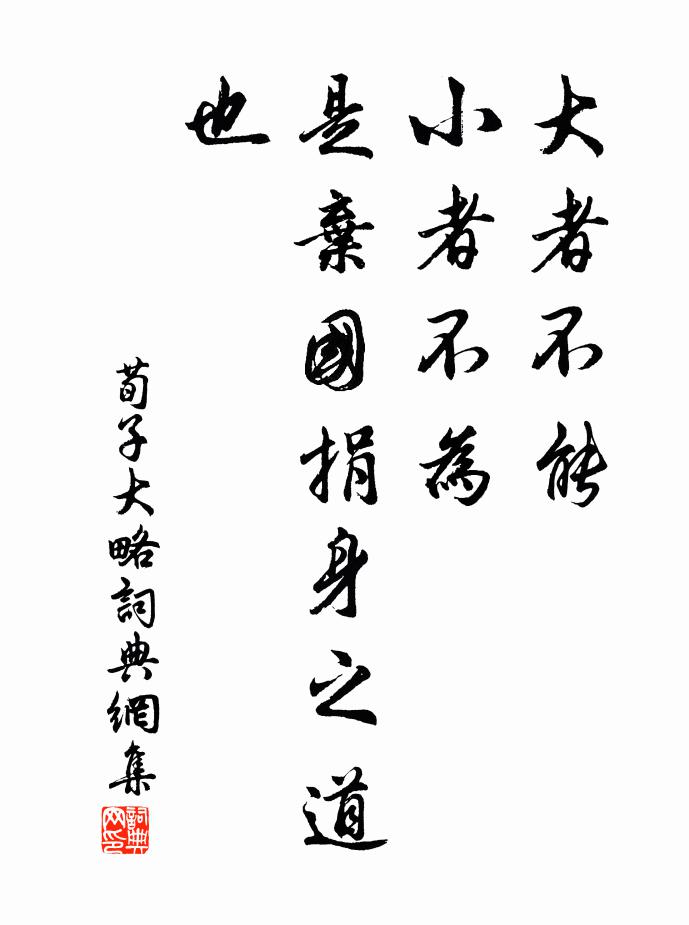 大者不能
小者不為
是棄國捐身之道
也
荀子大略詞典網集
詞典網印